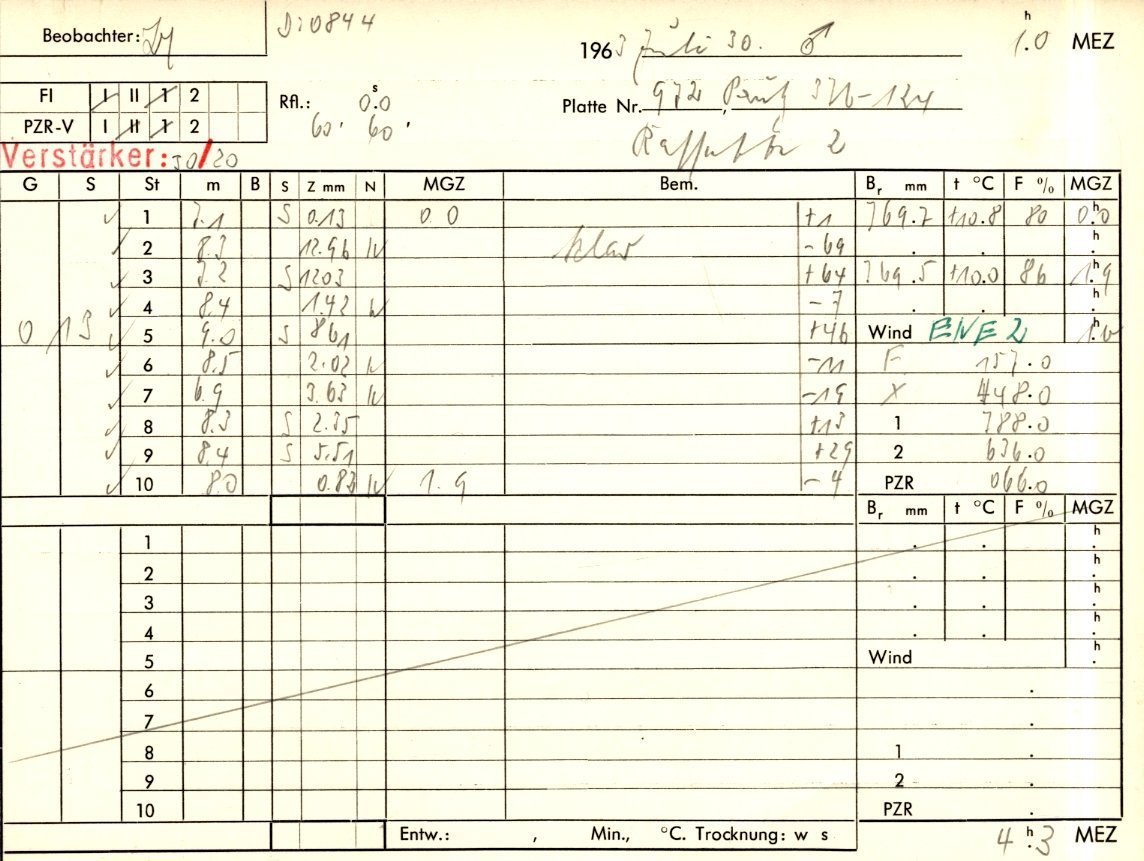 Beobachter:
Di0844
1963 Juli 30. ♂
1.0 h MEZ
FI I II 1 2
PZR-V I II 1 2
Rfl.: 0.0 s
60' 60'
Platte Nr. 972, 376-124
2
Verstärker: 50/20
G S St m B S Z mm N MGZ Bem. Br mm t °C F % MGZ
✓ 1 7.1 S 0.13 0.0 +1 769.7 +10.8 80 0.0 h
✓ 2 8.3 12.96 N klar -69 . . h
✓ 3 7.2 S 1203 +64 769.5 +10.0 86 1.9 h
✓ 4 8.4 1.42 N -7 . . h
0 13 ✓ 5 9.0 S 861 +46 Wind ENE 2 1.0 h
✓ 6 8.5 2.02 N -11 F 157.0
✓ 7 6.9 3.63 N -19 X 448.0
✓ 8 8.3 S 2.35 +13 1 788.0
✓ 9 8.4 S 5.51 +29 2 636.0
✓ 10 8.0 0.83 N 1.9 -4 PZR 066.0
Br mm t °C F % MGZ
1 . . h
2 . . h
3 . . h
4 . . h
5 Wind h
6 .
7 .
8 1 .
9 2 .
10 PZR .
Entw.: , Min., °C. Trocknung: w s
4.3 h MEZ